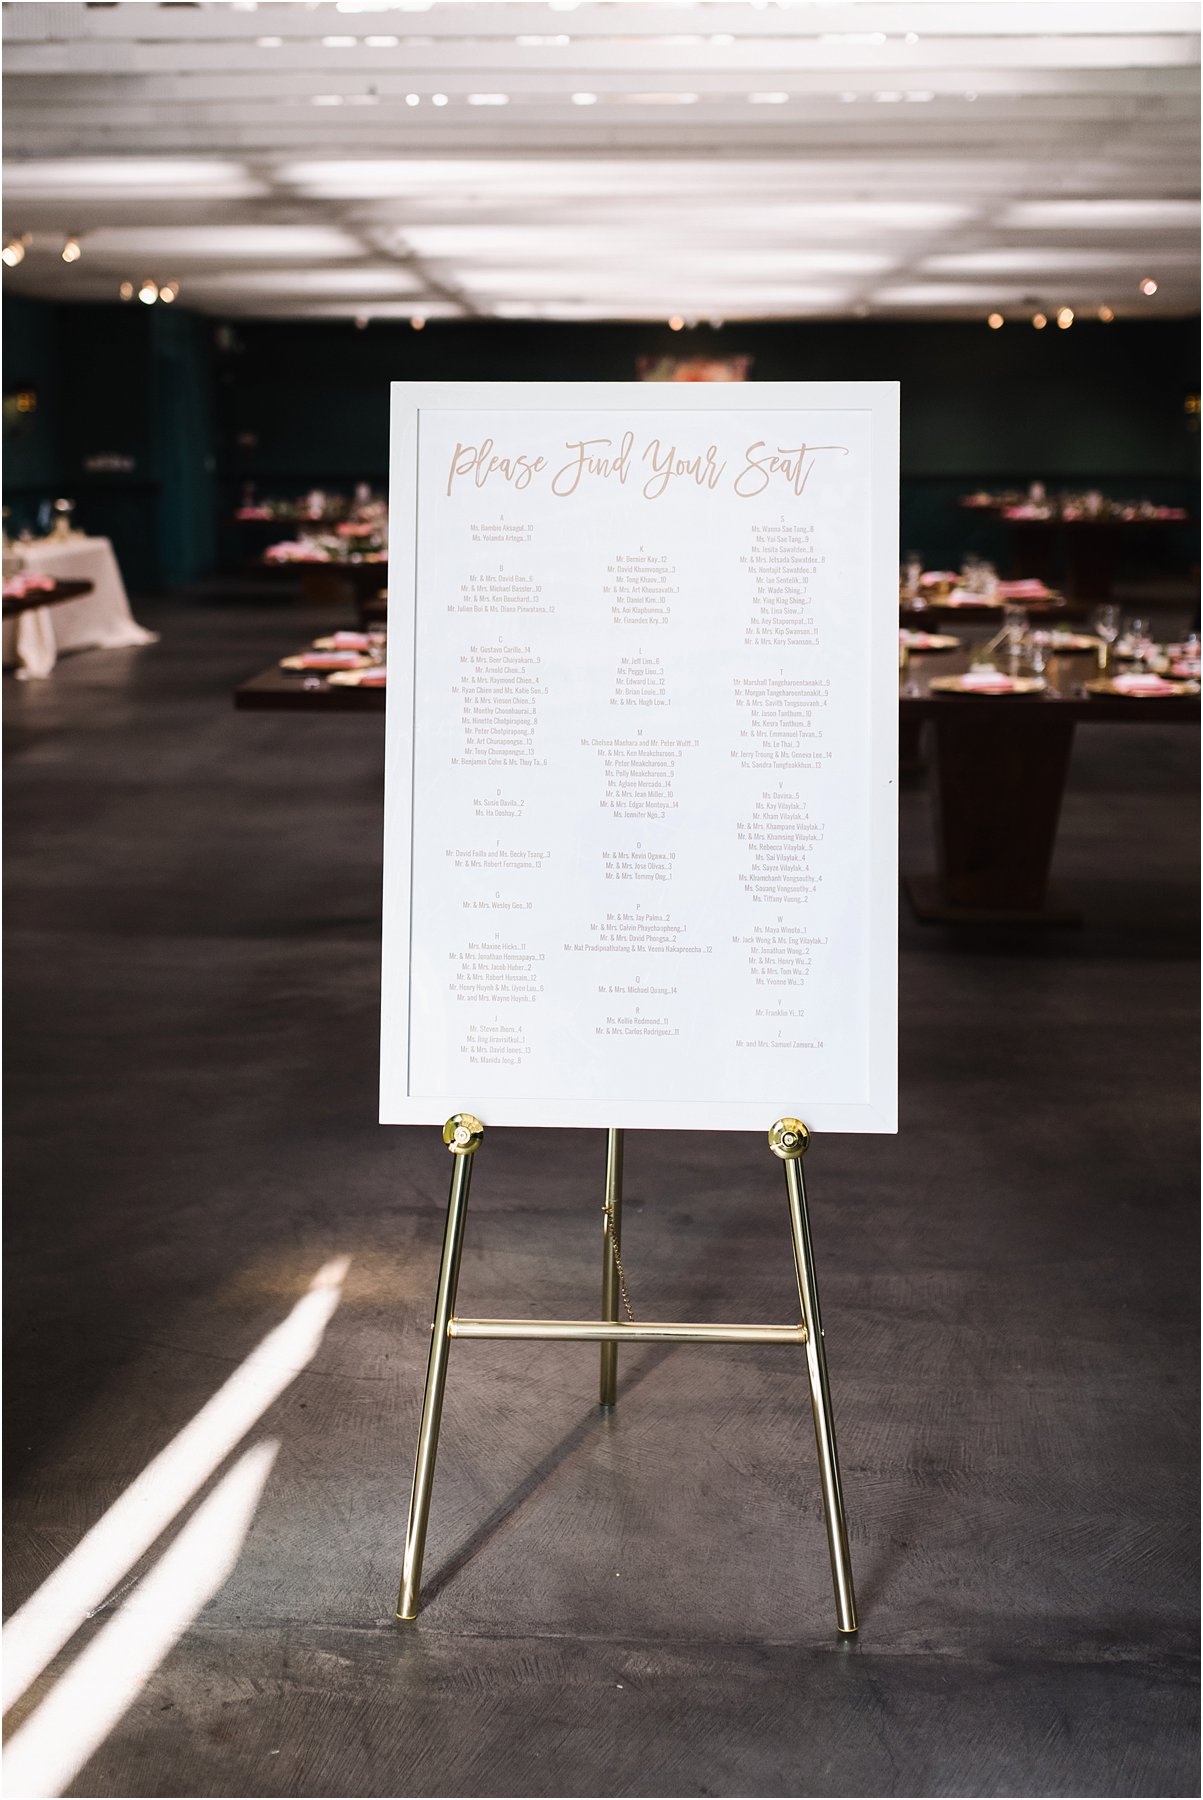 Please Find Your Seat
A
Ms. Bambie Aksagul...10
Ms. Yolanda Artega...11
B
Mr. & Mrs. David Ban...6
Mr. & Mrs. Michael Bassler...10
Mr. & Mrs. Ken Bouchard...13
Mr. Julien Bui & Ms. Diana Pinwatana...12
C
Mr. Gustavo Carillo...14
Mr. & Mrs. Beer Chaiyakarn...9
Mr. Arnold Chen...5
Mr. & Mrs. Raymond Chien...4
Mr. Ryan Chien and Ms. Katie Son...5
Mr. & Mrs. Vieson Chien...5
Mr. Monthy Choonhaurai...8
Ms. Ninette Chotpirapong...8
Mr. Peter Chotpirapong...8
Mr. Art Chunapongse...13
Mr. Tony Chunapongse...13
Mr. Benjamin Cohn & Ms. Thuy Ta...6
D
Ms. Susie Davila...2
Ms. Ha Doshay...2
F
Mr. David Failla and Ms. Becky Tsang...3
Mr. & Mrs. Robert Ferragamo...13
G
Mr. & Mrs. Wesley Gee...10
H
Mrs. Maxine Hicks...11
Mr. & Mrs. Jonathan Honnapaya...13
Mr. & Mrs. Jacob Huber...2
Mr. & Mrs. Robert Hussain...12
Mr. Henry Huynh & Ms. Uyen Luu...6
Mr. and Mrs. Wayne Huynh...6
J
Mr. Steven Jhoru...4
Ms. Jing Jiravisitkul...1
Mr. & Mrs. David Jones...13
Ms. Manida Jong...8
K
Mr. Bernier Kay...12
Mr. David Khamvongsa...3
Mr. Tong Khauv...10
Mr. & Mrs. Art Kheusavath...1
Mr. Daniel Kim...10
Ms. Aoi Klapbunma...9
Mr. Finandes Kry...10
L
Mr. Jeff Lim...6
Ms. Peggy Liou...3
Mr. Edward Liu...12
Mr. Brian Louie...10
Mr. & Mrs. Hugh Low...1
M
Ms. Chelsea Maehara and Mr. Peter Wulff...11
Mr. & Mrs. Ken Meakcharoon...9
Mr. Peter Meakcharoon...9
Ms. Polly Meakcharoen...9
Ms. Aglaee Mercado...14
Mr. & Mrs. Jean Miller...10
Mr. & Mrs. Edgar Montoya...14
Ms. Jennifer Ngo...3
O
Mr. & Mrs. Kevin Ogawa...10
Mr. & Mrs. Jose Olivas...3
Mr. & Mrs. Tommy Ong...1
P
Mr. & Mrs. Jay Palma...2
Mr. & Mrs. Calvin Phaychanpheng...1
Mr. & Mrs. David Phongsa...2
Mr. Nat Pradipnathalang & Ms. Veena Nakapreecha ...12
Q
Mr. & Mrs. Michael Quang...14
R
Ms. Kellie Redmond...11
Mr. & Mrs. Carlos Rodriguez...11
S
Ms. Wanna Sae Tang...8
Ms. Yui Sae Tang...9
Ms. Jesita Sawatdee...8
Mr. & Mrs. Jetsada Sawatdee...8
Ms. Nontajit Sawatdee...8
Mr. Ian Sentelik...10
Mr. Wade Shing...7
Mr. Ying Kiag Shing...7
Ms. Lina Siow...7
Ms. Aey Stapornpat...13
Mr. & Mrs. Kip Swanson...11
Mr. & Mrs. Kory Swanson...5
T
Mr. Marshall Tangcharoentanakit...9
Mr. Morgan Tangcharoentanakit...9
Mr. & Mrs. Savith Tangsouvanh...4
Mr. Jason Tanthum...10
Ms. Kesra Tanthum...8
Mr. & Mrs. Emmanuel Tavan...5
Ms. Le Thai...3
Mr. Jerry Troung & Ms. Geneva Lee...14
Ms. Sandra Tungteakkhun...13
V
Ms. Davina...5
Ms. Kay Vilaylak...7
Mr. Kham Vilaylak...4
Mr. & Mrs. Khampane Vilaylak...7
Mr. & Mrs. Khamsing Vilaylak...7
Ms. Rebecca Vilaylak...5
Ms. Sai Vilaylak...4
Ms. Sayze Vilaylak...4
Ms. Khamchanh Vongsouthy...4
Ms. Souang Vongsouthy...4
Ms. Tiffany Vuong...2
W
Ms. Maya Winoto...1
Mr. Jack Wong & Ms. Eng Vilaylak...7
Mr. Jonathan Wong...2
Mr. & Mrs. Henry Wu...2
Mr. & Mrs. Tom Wu...2
Ms. Yvonne Wu...3
Y
Mr. Franklin Yi...12
Z
Mr. and Mrs. Samuel Zamora...14